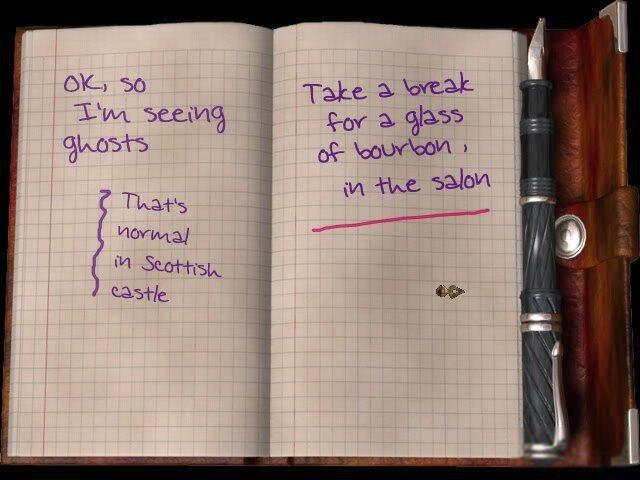 OK, so
I'm seeing
ghosts
That's
normal
in Scottish
castle
Take a break
for a glass
of bourbon,
in the salon